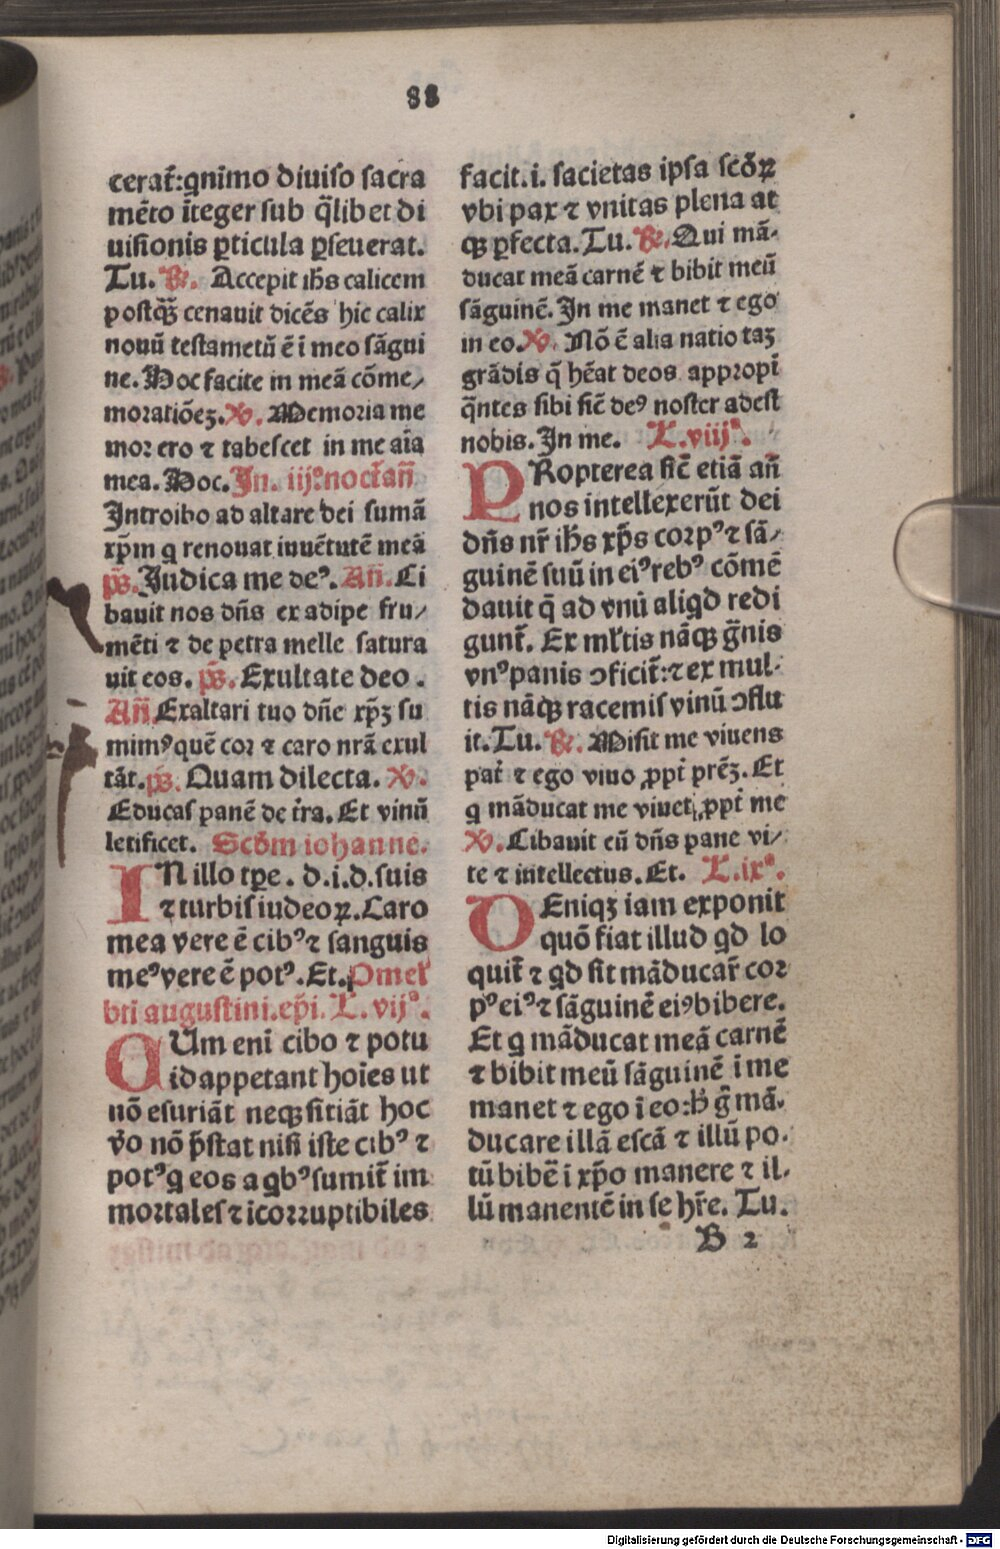 88
cerat̄:qnīmo diuiſo ſacra
mēto īteger ſub q̄libet di
uiſionis ꝑticula ꝑſeuerat.
Tu. ℟. Accepit ihs calicem
poſtqȝ̄ cenauit dicēs hic calix
nouū teſtametū ē ī meo ſāgui
ne. Hoc facite in meā cōme⸗
moratiōeꝫ. ℣. Memoria me
mor ero ⁊ tabeſcet in me aīa
mea. Hoc. In. iijº noct̄ an̄
Introibo ad altare dei ſumā
xp̄m q renouat iuuētutē meā
p̄s. Judica me deꝰ. An̄. Ci
bauit nos dn̄s ex adipe fru⸗
mēti ⁊ de petra melle ſatura
uit eos. p̄s. Exultate deo.
An̄. Exaltari tuo dn̄e xp̄ꝫ ſu
mimꝰ quē cor ⁊ caro nr̄a exul
tāt. p̄s. Quam dilecta. ℣.
Educaſ panē de t̄ra. Et vinū
letificet. Scd̄m iohanne.
IN illo tꝑe. d. i. d. ſuis
⁊ turbiſ iudeoꝝ. Caro
mea vere ē cibꝰ ⁊ ſanguis
meꝰ vere ē potꝰ. Et. Omel̄
bt̄i auguſtini. ep̄i. L. vijª.
QUm enī cibo ⁊ potu
id appetant hoīes ut
nō eſuriāt neqꝫ ſitiāt hoc
v̄o nō p̄ſtat niſi iſte cibꝰ ⁊
potꝰ q eos a qbꝰ ſumit̄ im
mortaleſ ⁊ icorruptibiles
facit. i. ſacietas ipſa ſcōꝝ
vbi pax ⁊ vnitas plena at
qꝫ ꝑfecta. Tu. ℟. Qui mā⸗
ducat meā carnē ⁊ bibit meū
ſāguinē. In me manet ⁊ ego
in eo. ℣. Nō ē alia natio taꝫ
grādis q̄ hēat deos appropī
q̄ntes ſibi ſic̄ deꝰ noſter adeſt
nobis. In me. L. viijª.
PRopterea ſic̄ etiā an̄
nos intellexerūt dei
dn̄s nr̄ ihs xp̄s corpꝰ ⁊ ſā⸗
guinē ſuū in eiꝰ rebꝰ cōmē
dauit q̄ ad vnū aliqd redi
gunt̄. Ex ml̄tis nāqꝫ ḡnis
vnꝰ panis ↄficit̄: ⁊ ex mul⸗
tis nāqꝫ racemiſ vinū ↄflu
it. Tu. ℟. Miſit me viuens
pat̄ ⁊ ego viuo ꝓpt̄ prēꝫ. Et
q māducat me viuet ꝓpt̄ me
℣. Cibauit eū dn̄s pane vi⸗
te ⁊ intellectus. Et. L. ixª.
DEniqꝫ iam exponit
quō fiat illud qd lo
quit̄ ⁊ qd ſit māducar̄ cor
pꝰ eiꝰ ⁊ ſāguinē eiꝰ bibere.
Et q māducat meā carnē
⁊ bibit meū ſāguinē ī me
manet ⁊ ego ī eo: h̄ g̊ mā⸗
ducare illā eſcā ⁊ illū po⸗
tū bibē ī xp̄o manere ⁊ il⸗
lū manentē in ſe hr̄e. Tu.
B 2
Digitalisierung gefördert durch die Deutsche Forschungsgemeinschaft - DFG